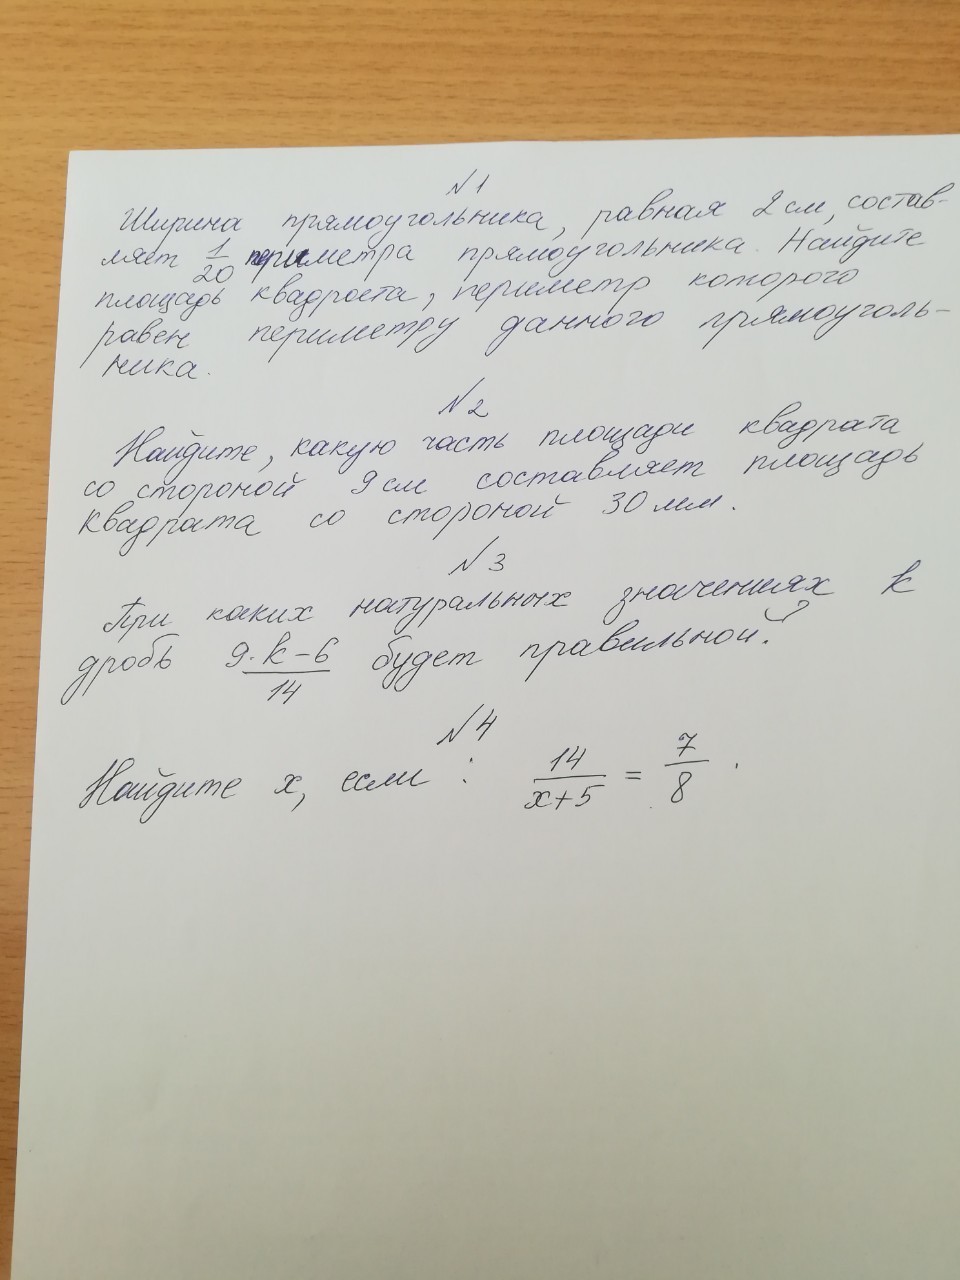 №1
Ширина прямоугольника, равная 2 см, состав-
ляет 1/20 периметра прямоугольника. Найдите
площадь квадрата, периметр которого
равен периметру данного прямоуголь-
ника.
№2
Найдите, какую часть площади квадрата
со стороной 9 см составляет площадь
квадрата со стороной 30 мм.
№3
При каких натуральных значениях k
дробь (9·k-6)/14 будет правильной?
№4
Найдите x, если : 14/(x+5) = 7/8 .